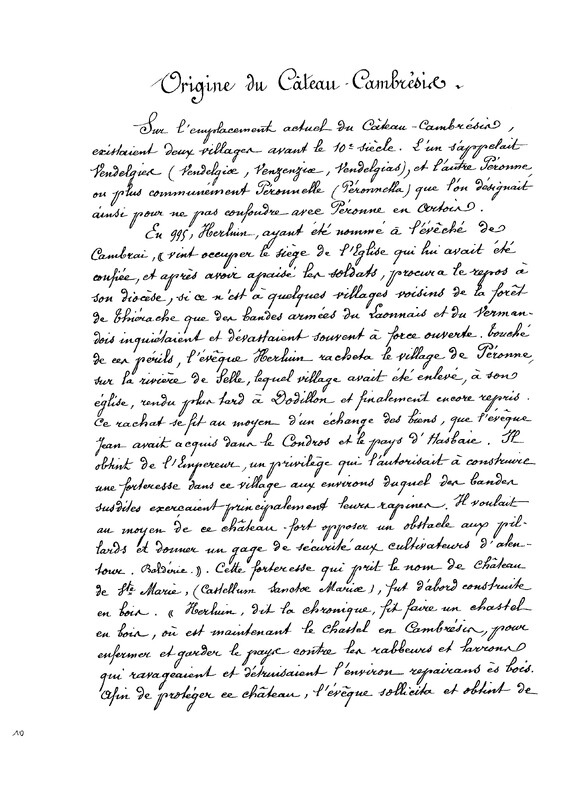 Origine du Câteau-Cambrésis.
Sur l'emplacement actuel du Câteau-Cambrésis,
existaient deux villages avant le 10e siècle. L'un s'appelait
Vendelgies (Vendelgiæ, Venzenziæ, Vendelgias), et l'autre Péronne
ou plus communément Péronnelle (Péronnella) que l'on désignait
ainsi pour ne pas confondre avec Péronne en Artois.
En 995, Herluin, ayant été nommé à l'évêché de
Cambrai, « vint occuper le siège de l'Eglise qui lui avait été
confiée, et après avoir apaisé les soldats, procura le repos à
son diocèse, si ce n'est à quelques villages voisins de la forêt
de Thiérache que des bandes armées du Laonnais et du Verman-
dois inquiétaient et dévastaient souvent à force ouverte. Touché
de ces périls, l'évêque Herluin racheta le village de Péronne,
sur la rivière de Selle, lequel village avait été enlevé, à son
église, rendu plus tard à Dodillon et finalement encore repris.
Ce rachat se fit au moyen d'un échange des biens, que l'évêque
Jean avait acquis dans le Condros et le pays d'Hasbaie. Il
obtint de l'Empereur, un privilège qui l'autorisait à construire
une forteresse dans ce village aux environs duquel des bandes
susdites exercaient principalement leurs rapines. Il voulait
au moyen de ce château-fort opposer un obstacle aux pil-
lards et donner un gage de sécurité aux cultivateurs d'alen-
tour. Baldéric.». Cette forteresse qui prit le nom de Château
de Ste Marie, (Castellum Sanctæ Mariæ), fut d'abord construite
en bois. « Herluin, dit la chronique, fit faire un chastel
en bois, où est maintenant le chastel en Cambrésis, pour
enfermer et garder le pays contre les rabbeurs et larrons
qui ravageaient et détruisaient l'environ repairans ès bois.
Afin de protéger ce château, l'évêque sollicita et obtint de